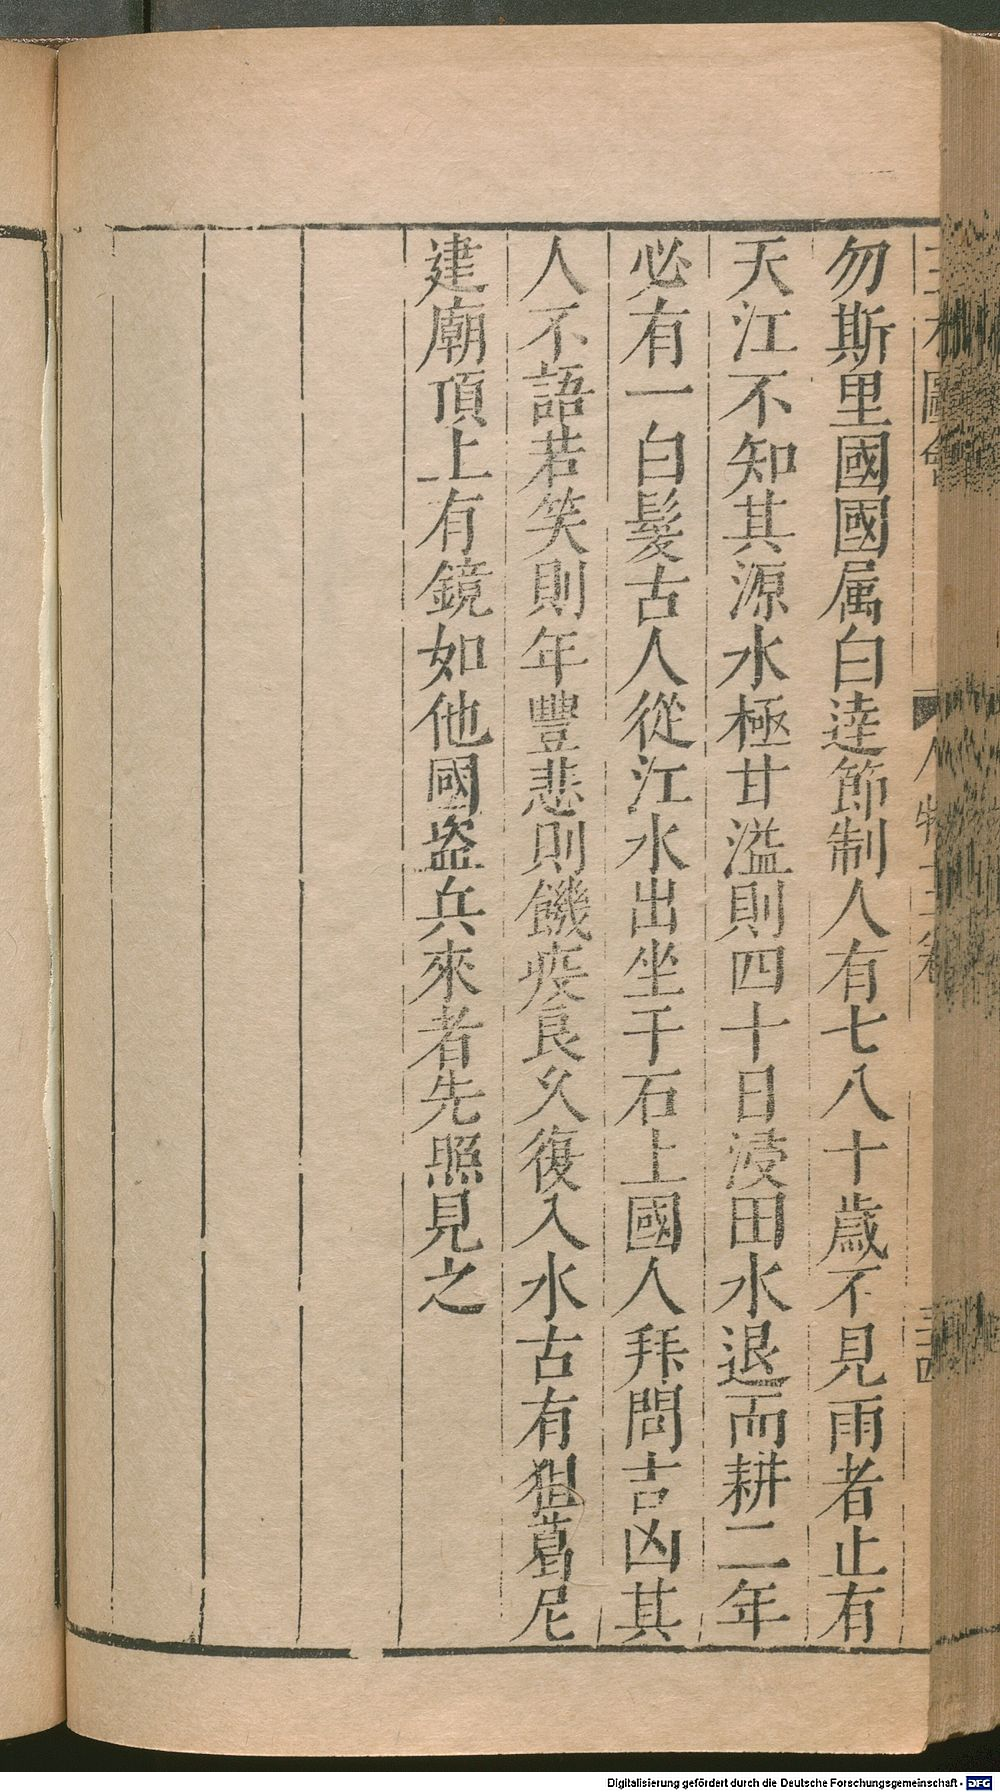 勿斯里國國属白達節制人有七八十歲不見雨者止有
天江不知其源水極甘溢則四十日浸田水退而耕二年
必有一白髮古人從江水出坐于石上國人拜問吉凶其
人不語若笑則年豐悲則饑疫良久復入水古有狙葛尼
建廟頂上有鏡如他國盗兵來者先照見之
Digitalisierung gefördert durch die Deutsche Forschungsgemeinschaft - DFG